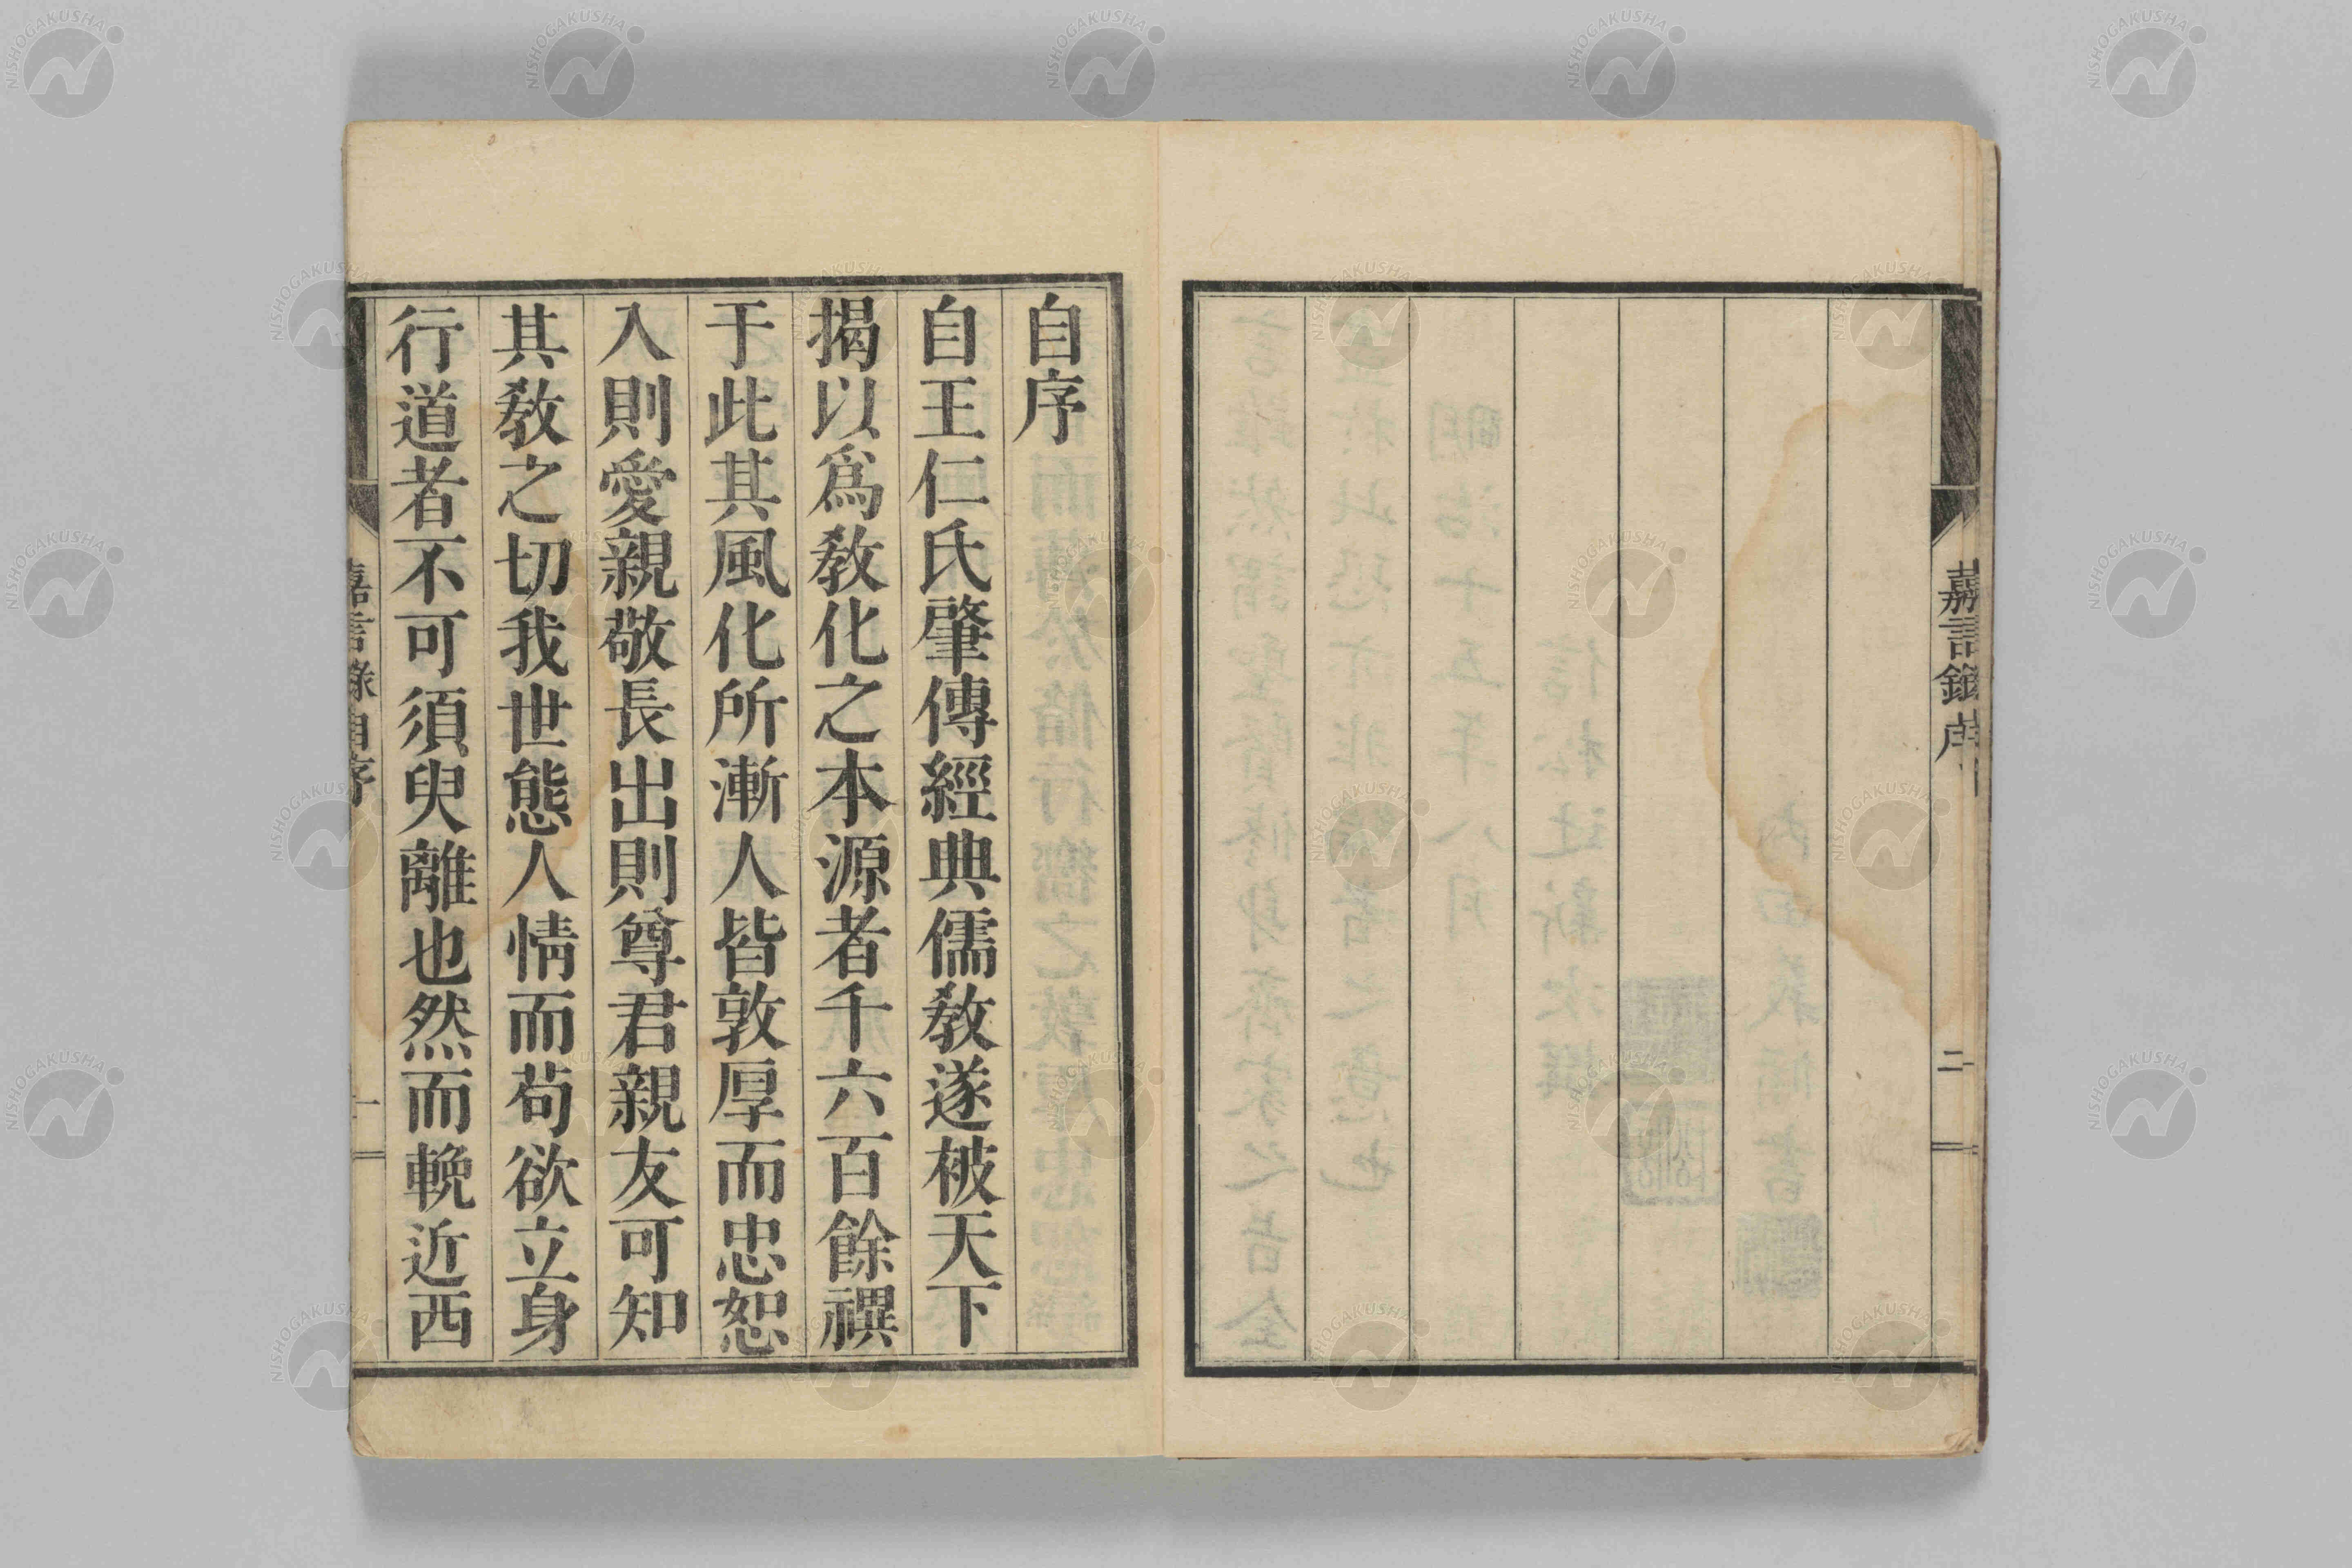 嘉言録序
二
自序
自王仁氏肇傳經典儒敎遂被天下
揭以爲敎化之本源者千六百餘禩
于此其風化所漸人皆敦厚而忠恕
入則愛親敬長出則尊君親友可知
其敎之切我世態人情而苟欲立身
行道者不可須臾離也然而輓近西
嘉言錄自序
一
NISHOGAKUSHA